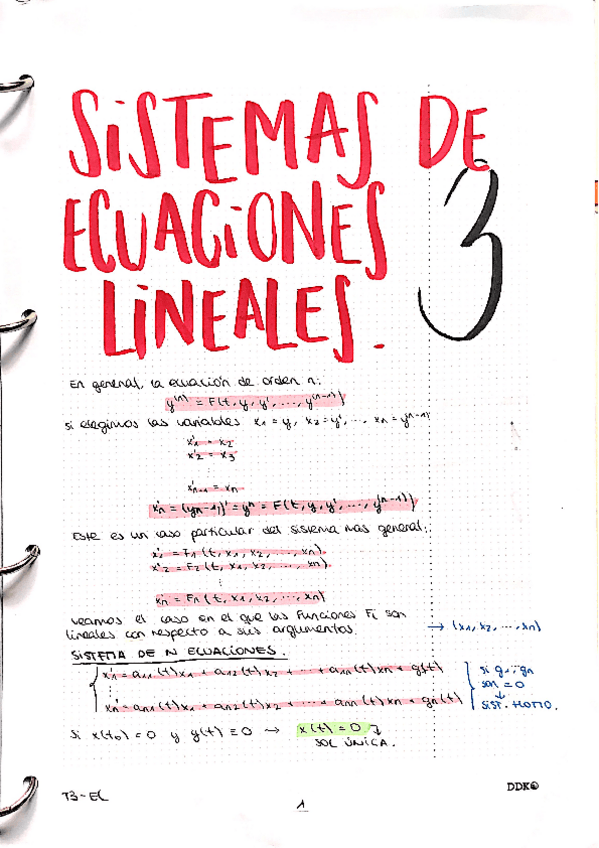 SISTEMAS DE
ECUACIONES
LINEALES.
3
En general, la ecuación de orden n:
y⁽ⁿ⁾ = F(t, y, y', ..., y⁽ⁿ⁻¹⁾)
si elegimos las variables x₁ = y, x₂ = y', ..., xn = yⁿ⁻¹
x'₁ = x₂
x'₂ = x₃
x'n-1 = xn
x'n = (yn-1)' = yⁿ = F(t, y, y', ..., yn-1))
Este es un caso particular del sistema mas general:
x'₁ = F₁ (t, x₁, x₂, ..., xn)
x'₂ = F₂ (t, x₁, x₂, ..., xn)
⋮
x'n = Fn (t, x₁, x₂, ..., xn)
veamos el caso en el que las funciones Fi son
lineales con respecto a sus argumentos. → (x₁, x₂, ..., xn)
SISTEMA DE N ECUACIONES.
x₁' = a₁₁(t)x₁ + a₁₂(t)x₂ + ... + a₁n(t)xn + g₁(t)
⋮
xn' = an1(t)x₁ + an2(t)x₂ + ... + ann(t)xn + gn(t)
si g₁...gn
son = 0
↓
SIST. HOMO.
Si x(t₀) = 0 y g(t) ≡ 0 → x(t) = 0
SOL ÚNICA.
T3-EL
1
DDK©